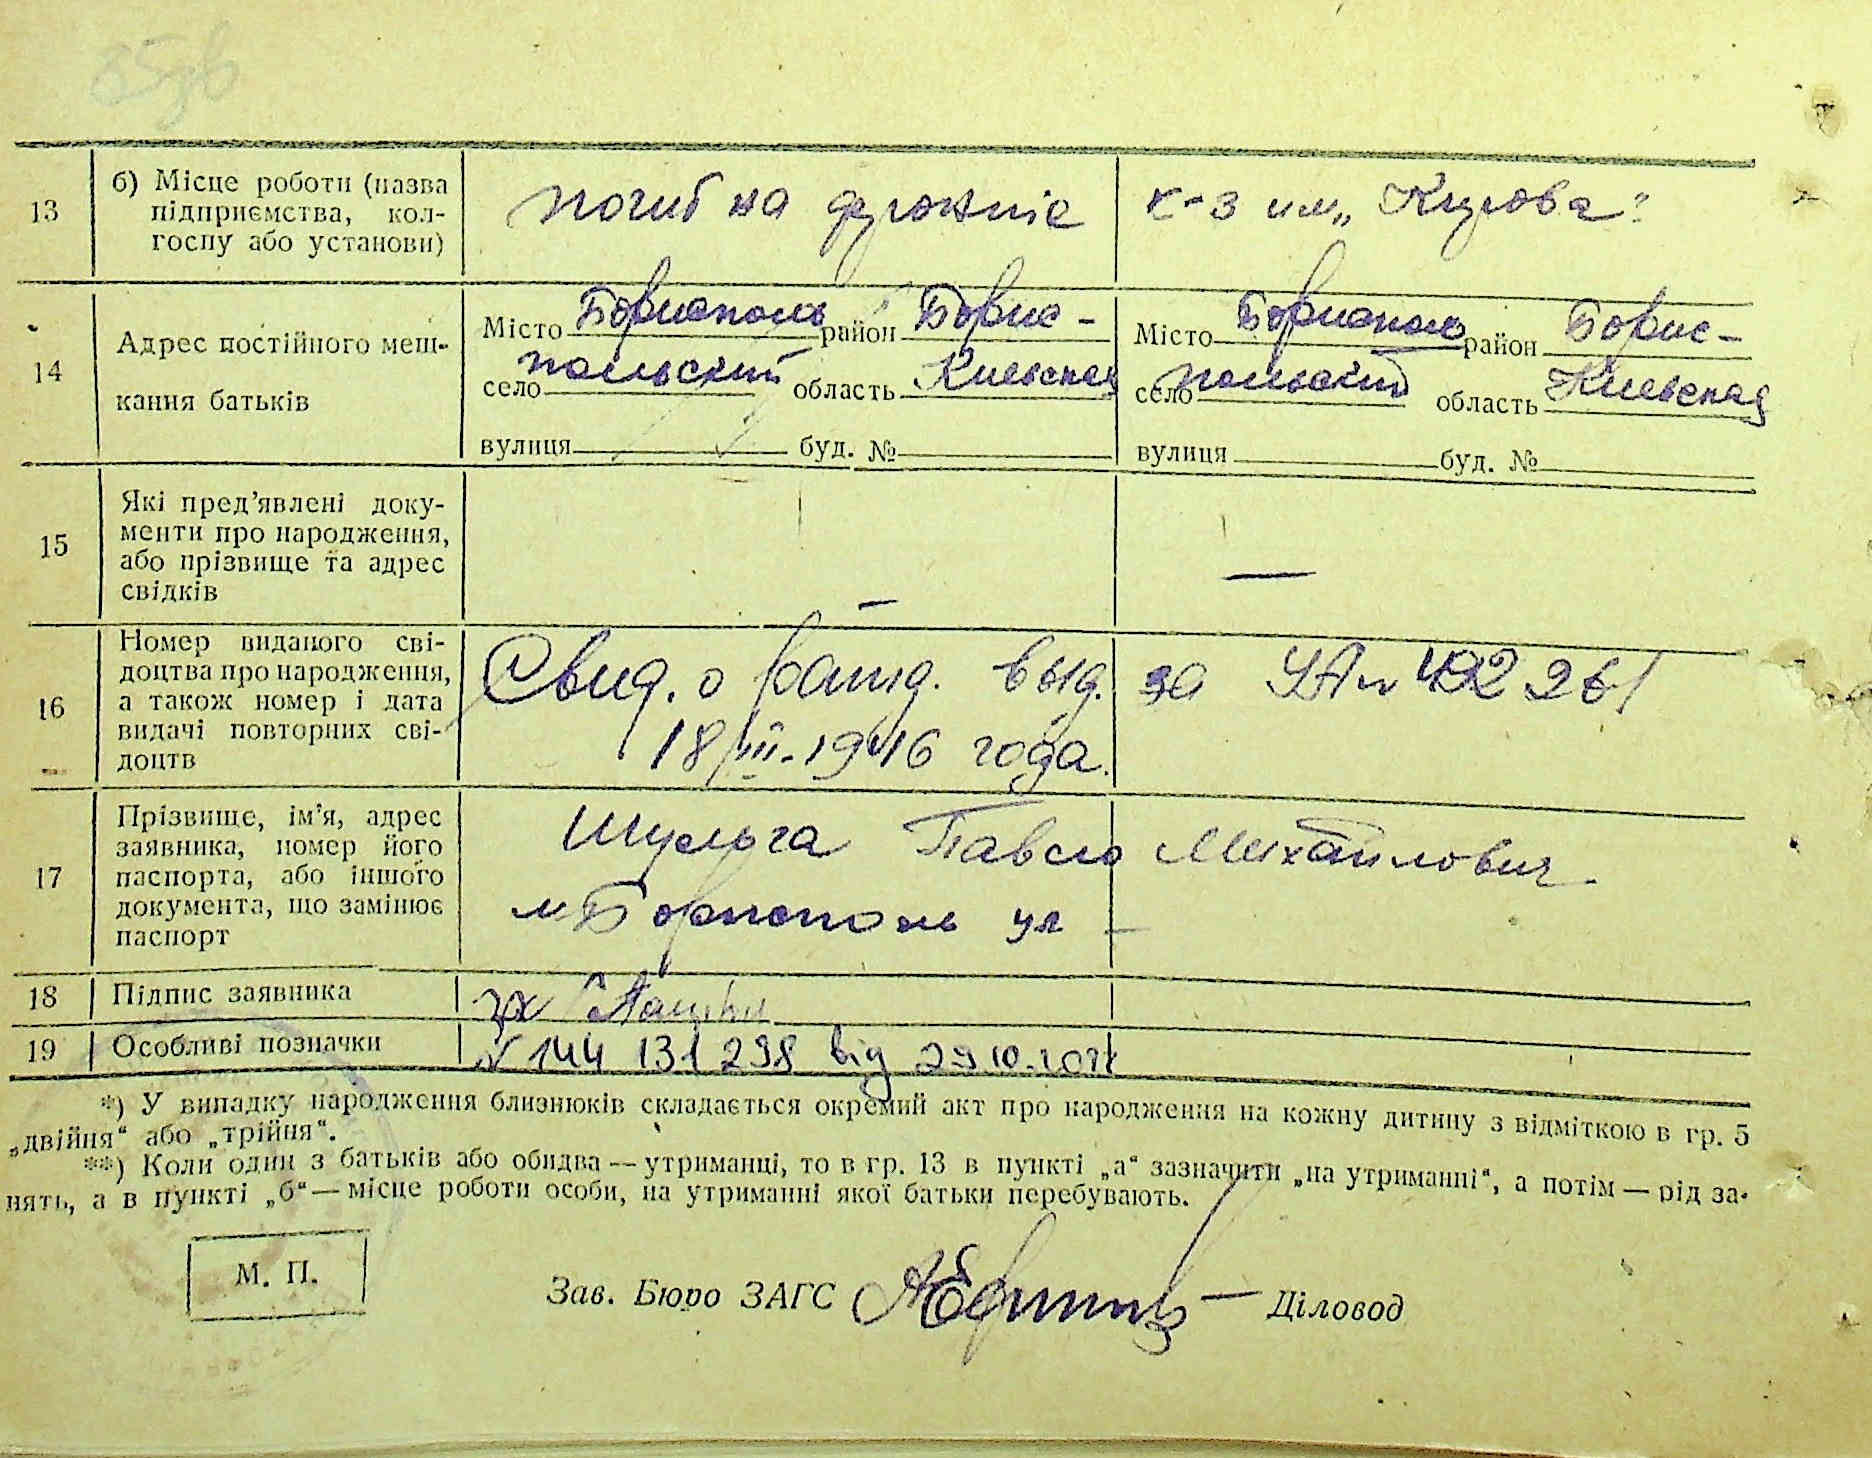 13
б) Місце роботи (назва
підприємства, кол-
госпу або установи)
погиб на фронте
к-з им „Кирова"
14
Адрес постійного меш-
кання батьків
Місто Борисполь район Борис-
село польский область Киевская
вулиця буд. №
Місто Борисполь район Борис-
село польский область Киевская
вулиця буд. №
15
Які пред’явлені доку-
менти про народження,
або прізвище та адрес
свідків
—
—
16
Номер виданого сві-
доцтва про народження,
а також номер і дата
видачі повторних сві-
доцтв
Свид. о рожд. выд. за № 492261
18/III-1946 года.
17
Прізвище, ім’я, адрес
заявника, номер його
паспорта, або іншого
документа, що замінює
паспорт
Шульга Павло Михайлович
м Борисполь ул —
18
Підпис заявника
19
Особливі позначки
№ 144 131 298 від 29.10.
*) У випадку народження близнюків складається окремий акт про народження на кожну дитину з відміткою в гр. 5
„двійня“ або „трійня“.
**) Коли один з батьків або обидва — утриманці, то в гр. 13 в пункті „а“ зазначити „на утриманні“, а потім — рід за-
нять, а в пункті „б“ — місце роботи особи, на утриманні якої батьки перебувають.
М. П.
Зав. Бюро ЗАГС
Діловод